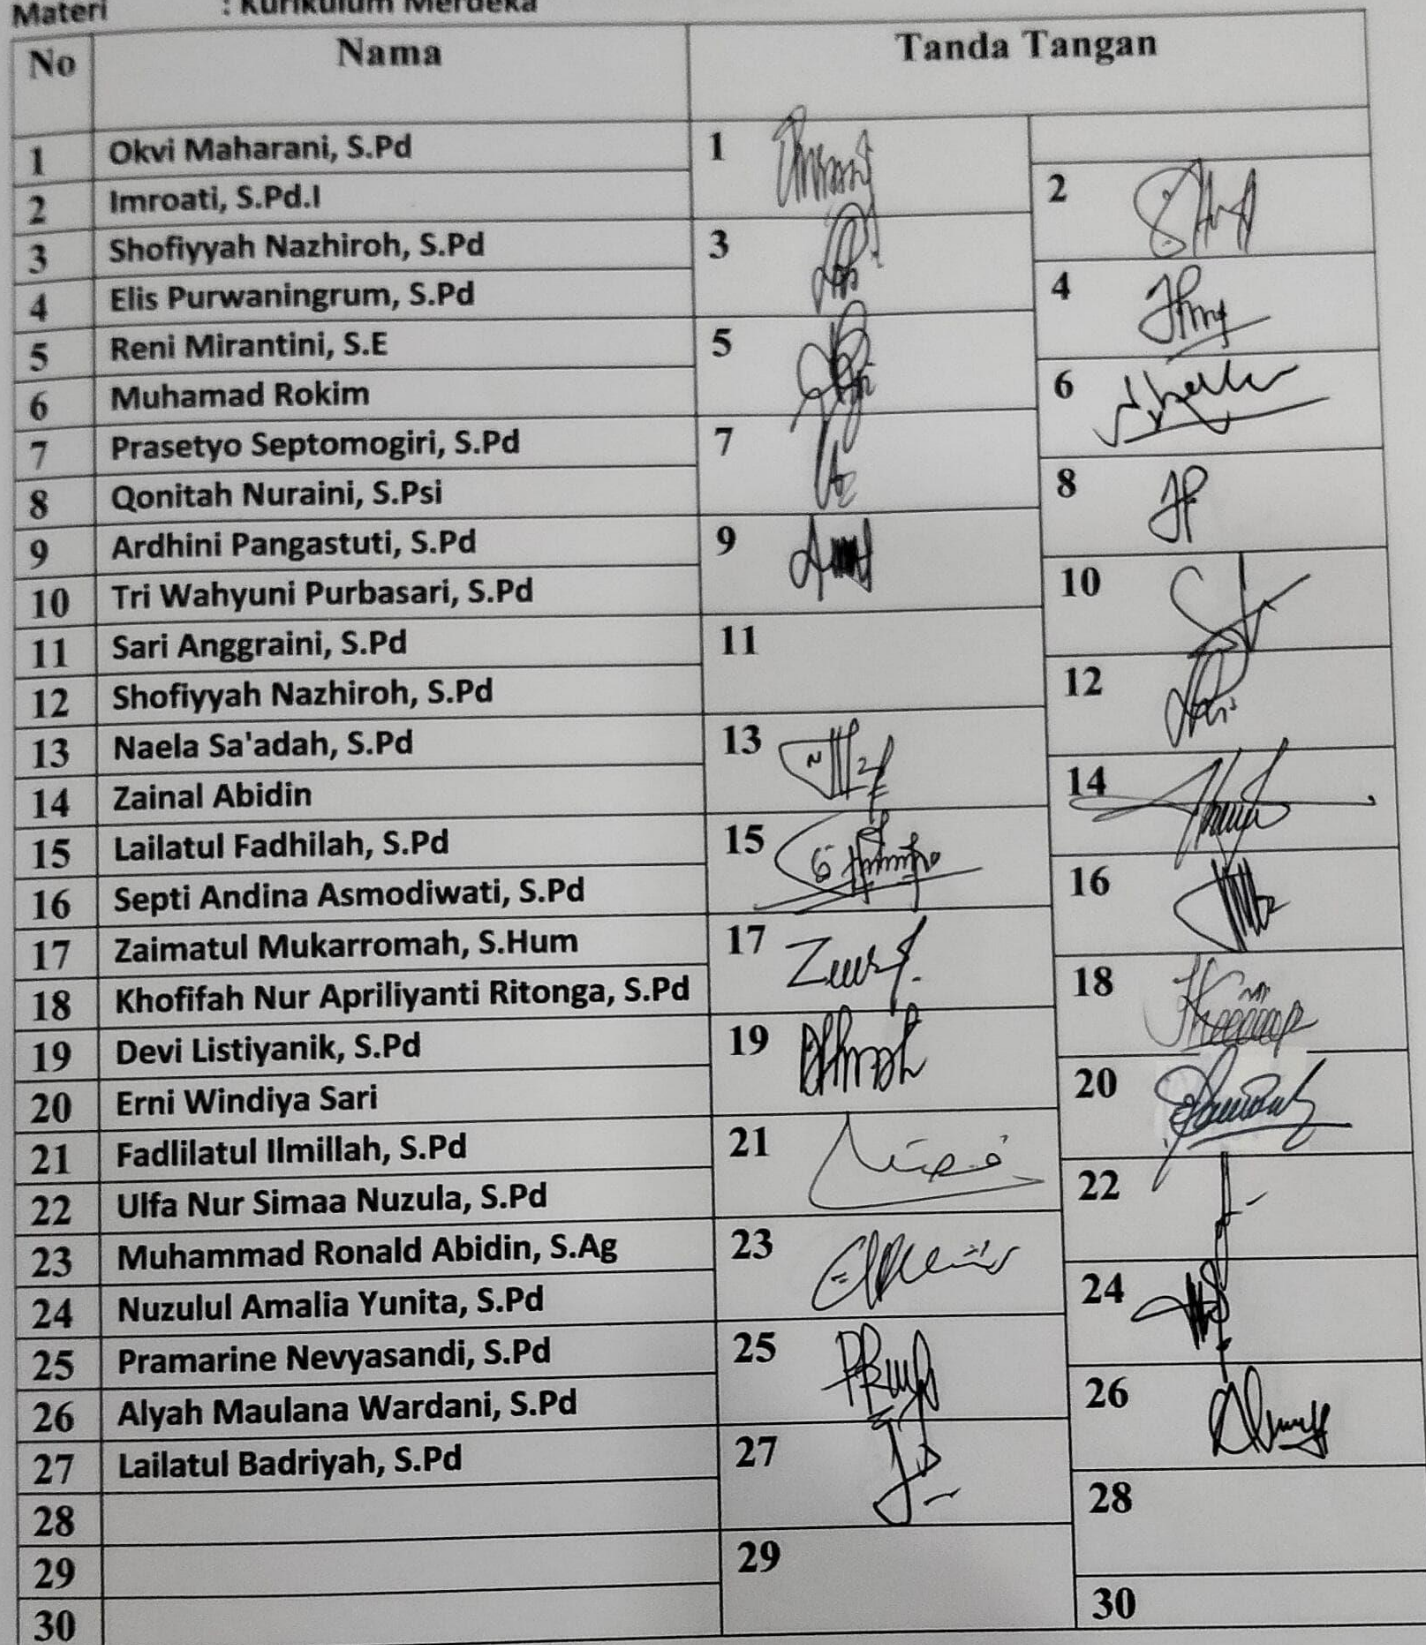 Materi : Kurikulum Merdeka
No Nama Tanda Tangan
1 Okvi Maharani, S.Pd 1
2 Imroati, S.Pd.I 2
3 Shofiyyah Nazhiroh, S.Pd 3
4 Elis Purwaningrum, S.Pd 4
5 Reni Mirantini, S.E 5
6 Muhamad Rokim 6
7 Prasetyo Septomogiri, S.Pd 7
8 Qonitah Nuraini, S.Psi 8
9 Ardhini Pangastuti, S.Pd 9
10 Tri Wahyuni Purbasari, S.Pd 10
11 Sari Anggraini, S.Pd 11
12 Shofiyyah Nazhiroh, S.Pd 12
13 Naela Sa'adah, S.Pd 13
14 Zainal Abidin 14
15 Lailatul Fadhilah, S.Pd 15
16 Septi Andina Asmodiwati, S.Pd 16
17 Zaimatul Mukarromah, S.Hum 17
18 Khofifah Nur Apriliyanti Ritonga, S.Pd 18
19 Devi Listiyanik, S.Pd 19
20 Erni Windiya Sari 20
21 Fadlilatul Ilmillah, S.Pd 21
22 Ulfa Nur Simaa Nuzula, S.Pd 22
23 Muhammad Ronald Abidin, S.Ag 23
24 Nuzulul Amalia Yunita, S.Pd 24
25 Pramarine Nevyasandi, S.Pd 25
26 Alyah Maulana Wardani, S.Pd 26
27 Lailatul Badriyah, S.Pd 27
28 28
29 29
30 30